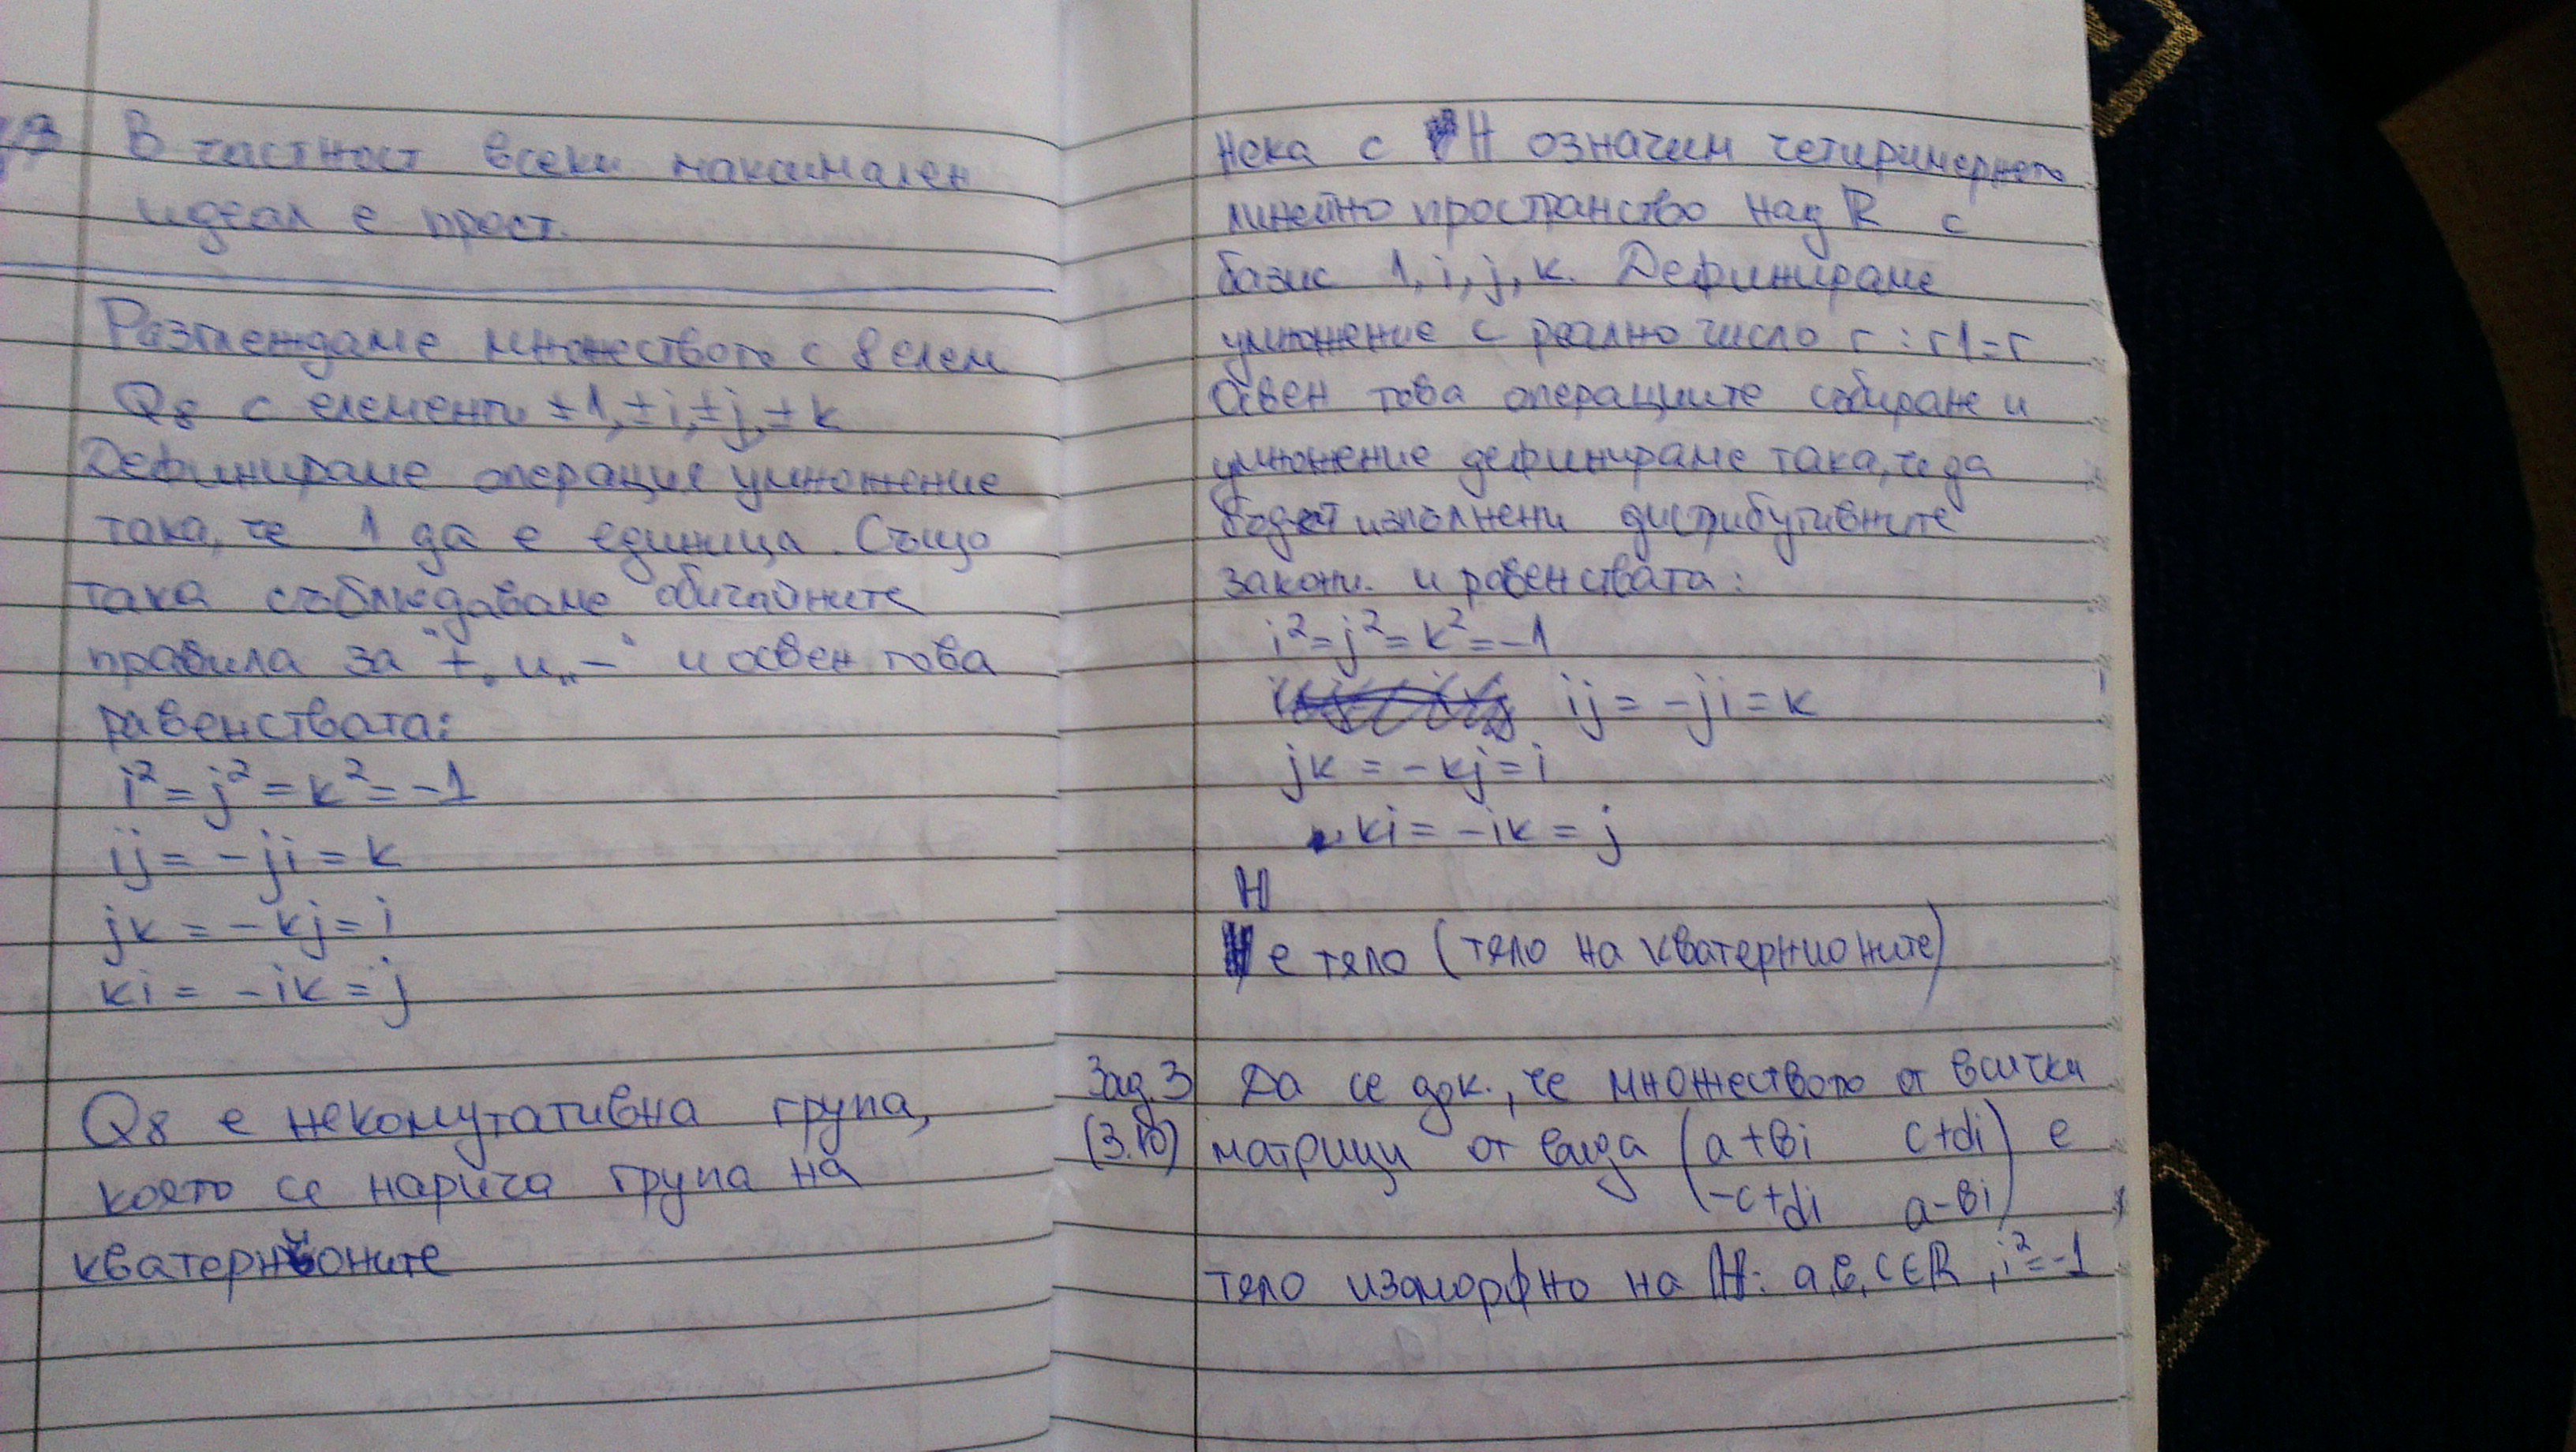 В частност всеки максимален
идеал е прост.
Разглеждаме множеството с 8 елем
Q8 с елементи ±1, ±i, ±j, ±k
Дефинираме операция умножение
така, че 1 да е единица. Също
така съблюдаваме обичайните
правила за "+" и "-" и освен това
равенствата:
i² = j² = k² = -1
ij = -ji = k
jk = -kj = i
ki = -ik = j
Q8 е некомутативна група,
която се нарича група на
кватернионите
Нека с H означим четиримерното
линейно пространство над R с
базис 1, i, j, k. Дефинираме
умножение с реално число r : r1=r
Освен това операциите събиране и
умножение дефинираме така, че да
бъдат изпълнени дистрибутивните
закони. и равенствата:
i² = j² = k² = -1
ij = -ji = k
jk = -kj = i
ki = -ik = j
H
е тяло (тяло на кватернионите)
Зад. 3 Да се док., че множеството от всички
(3.10) матрици от вида (a+bi c+di) е
(-c+di a-bi)
тяло изоморфно на H: a, b, c ∈ R, i² = -1